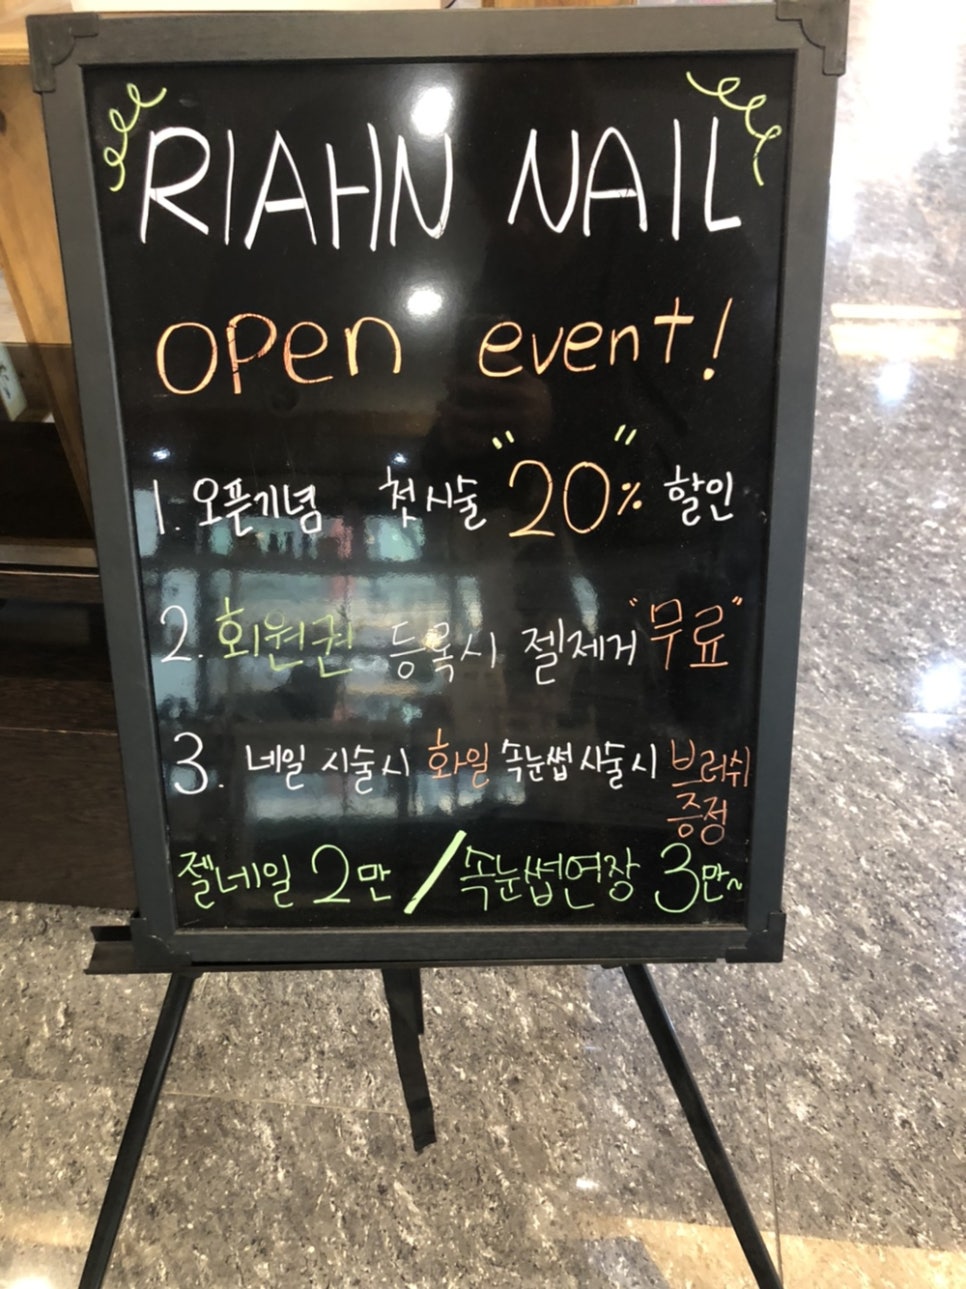 RIAHN NAIL
open event!
1. 오픈기념 첫시술 "20"% 할인
2. 회원권 등록시 젤제거 "무료"
3. 네일 시술시 화일 속눈썹 시술시 브러쉬
증정
젤네일 2만 / 속눈썹연장 3만~